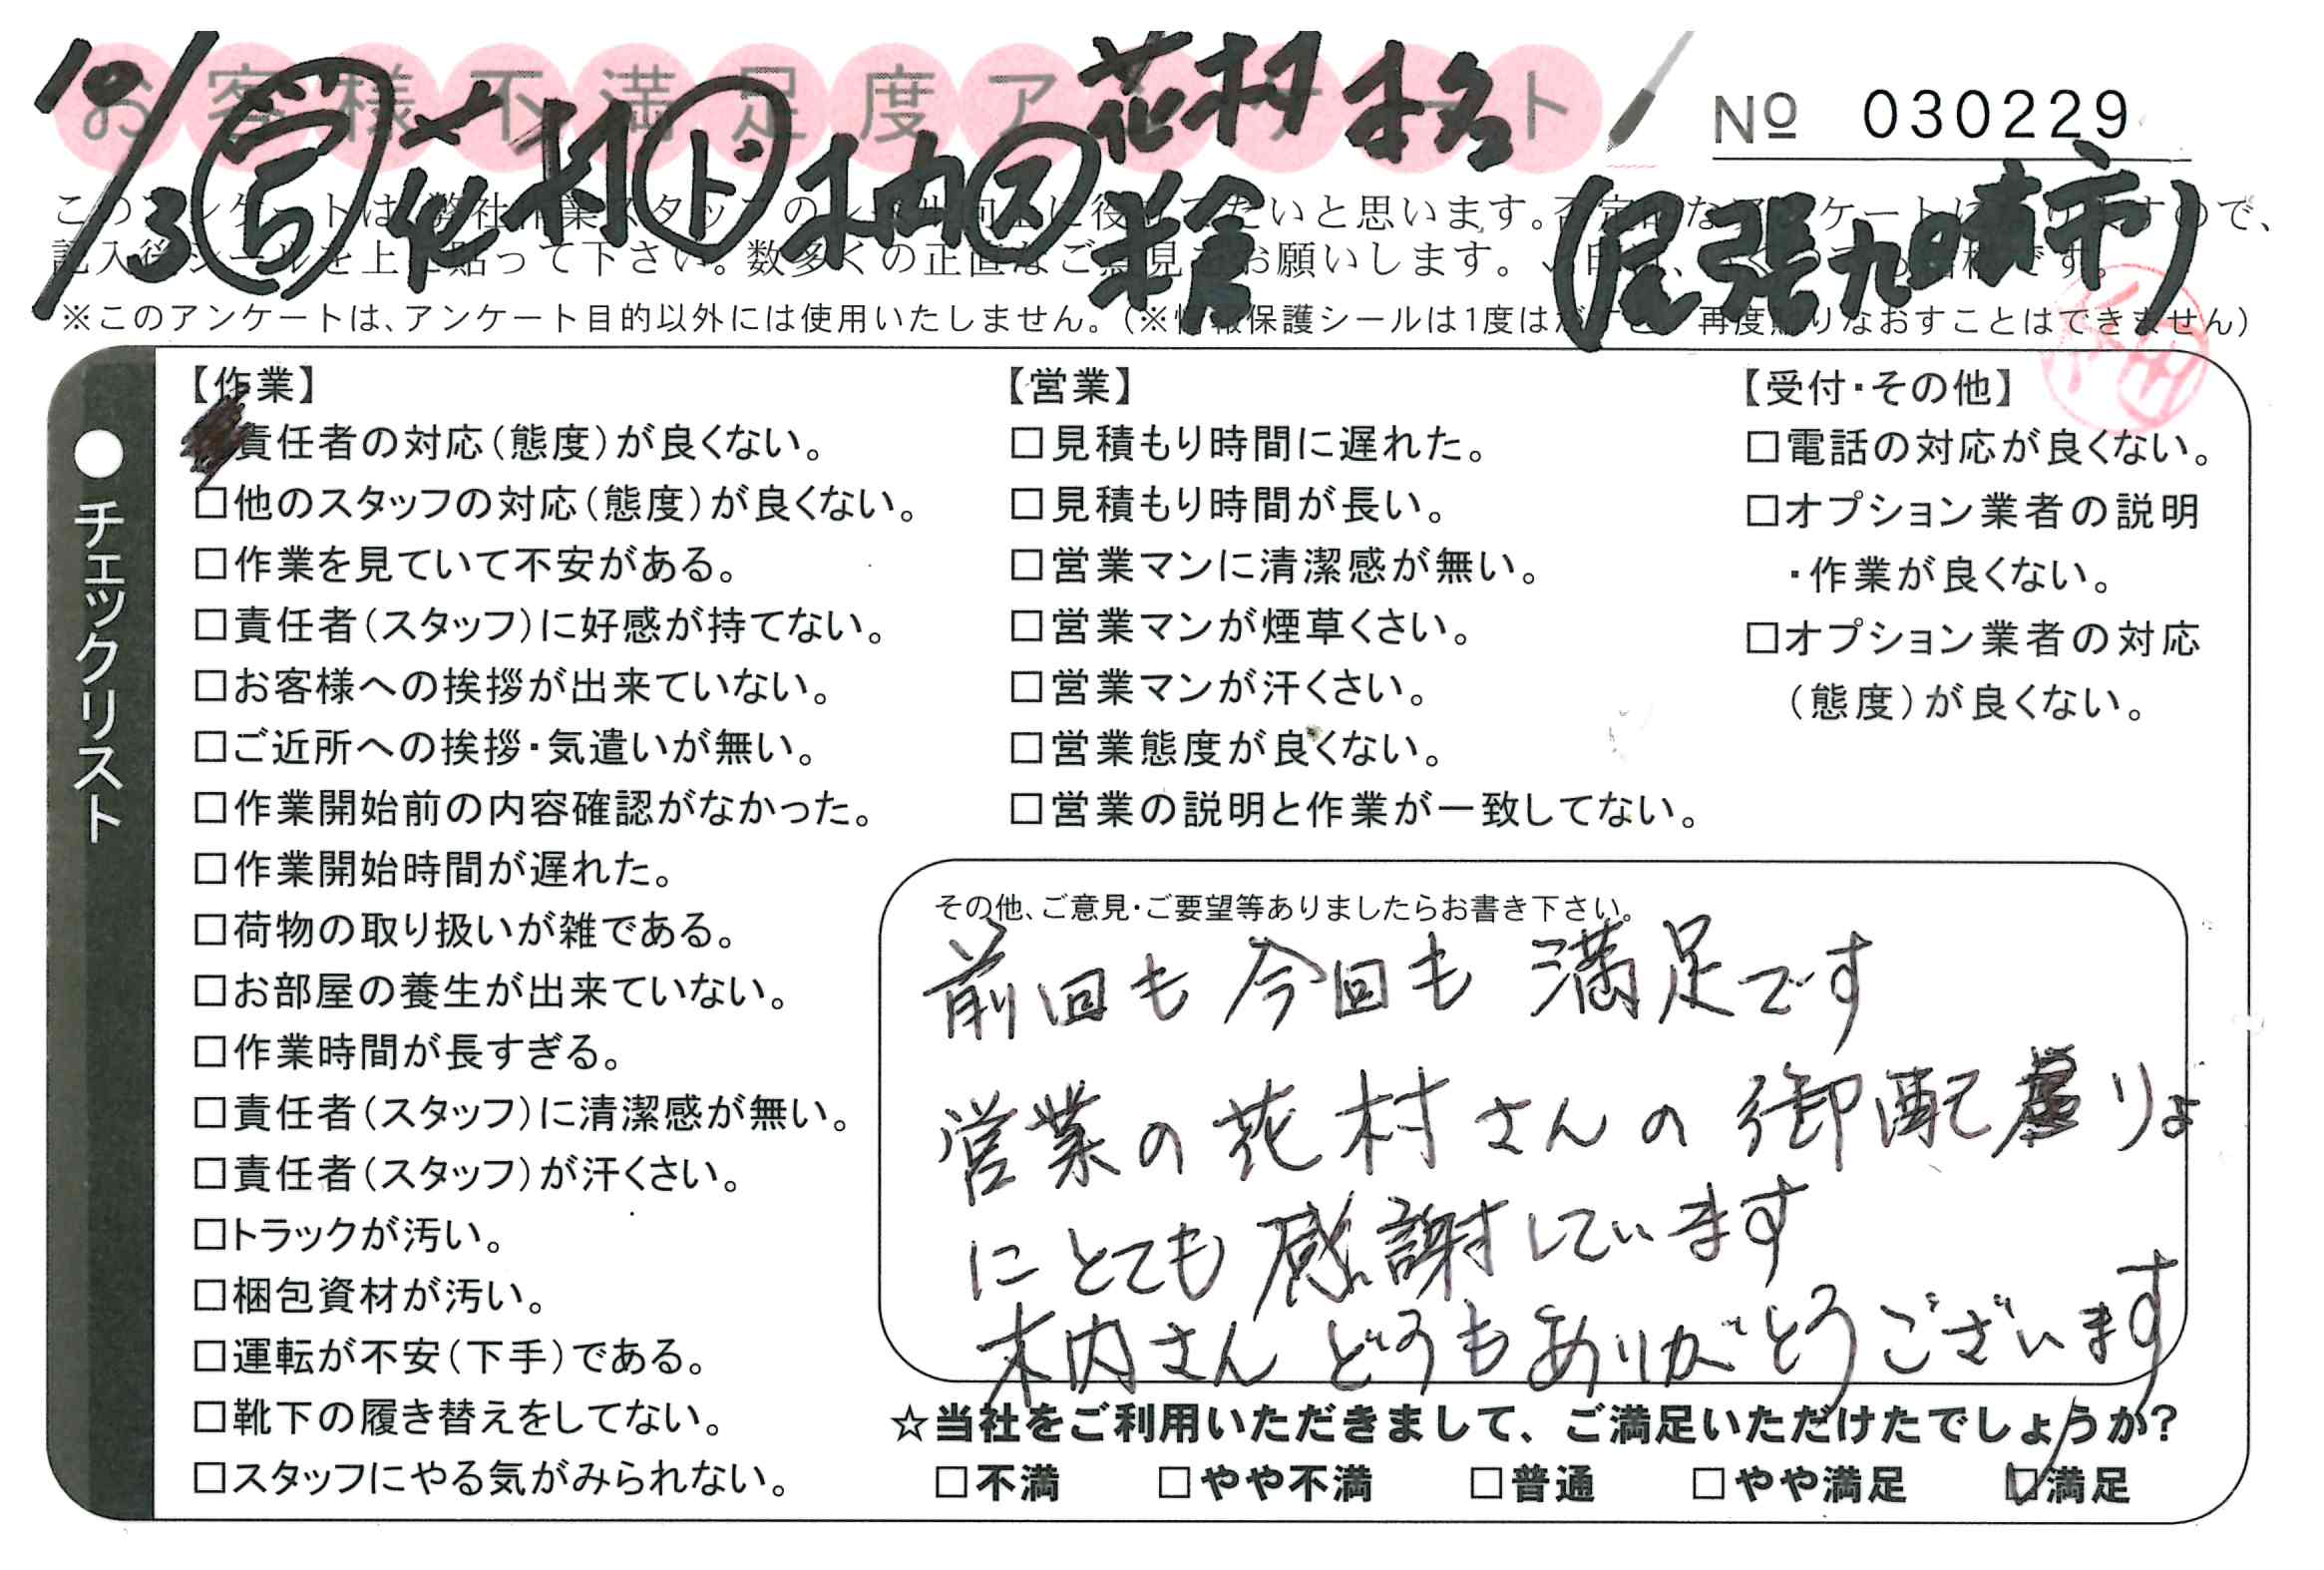 お客様不満足度アンケート
№ 030229
10/3 花村 ト 柚 ス 花村 格
(尾張旭市)
※このアンケートは、アンケート目的以外には使用いたしません。(※情報保護シールは1度はがすと、再度貼りなおすことはできません)
●チェックリスト
【作業】
責任者の対応(態度)が良くない。
□他のスタッフの対応(態度)が良くない。
□作業を見ていて不安がある。
□責任者(スタッフ)に好感が持てない。
□お客様への挨拶が出来ていない。
□ご近所への挨拶・気遣いが無い。
□作業開始前の内容確認がなかった。
□作業開始時間が遅れた。
□荷物の取り扱いが雑である。
□お部屋の養生が出来ていない。
□作業時間が長すぎる。
□責任者(スタッフ)に清潔感が無い。
□責任者(スタッフ)が汗くさい。
□トラックが汚い。
□梱包資材が汚い。
□運転が不安(下手)である。
□靴下の履き替えをしてない。
□スタッフにやる気がみられない。
【営業】
□見積もり時間に遅れた。
□見積もり時間が長い。
□営業マンに清潔感が無い。
□営業マンが煙草くさい。
□営業マンが汗くさい。
□営業態度が良くない。
□営業の説明と作業が一致してない。
【受付・その他】
□電話の対応が良くない。
□オプション業者の説明
・作業が良くない。
□オプション業者の対応
(態度)が良くない。
その他、ご意見・ご要望等ありましたらお書き下さい。
前回も今回も満足です
営業の花村さんの御配慮りょ
にとても感謝しています
木内さんどうもありがとうございます
☆当社をご利用いただきまして、ご満足いただけたでしょうか?
□不満 □やや不満 □普通 □やや満足 ☑満足